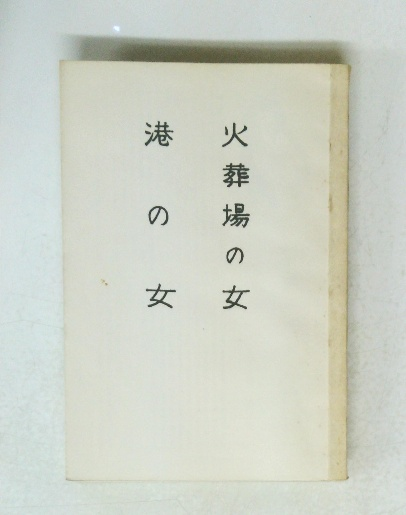 火葬場の女
港の女